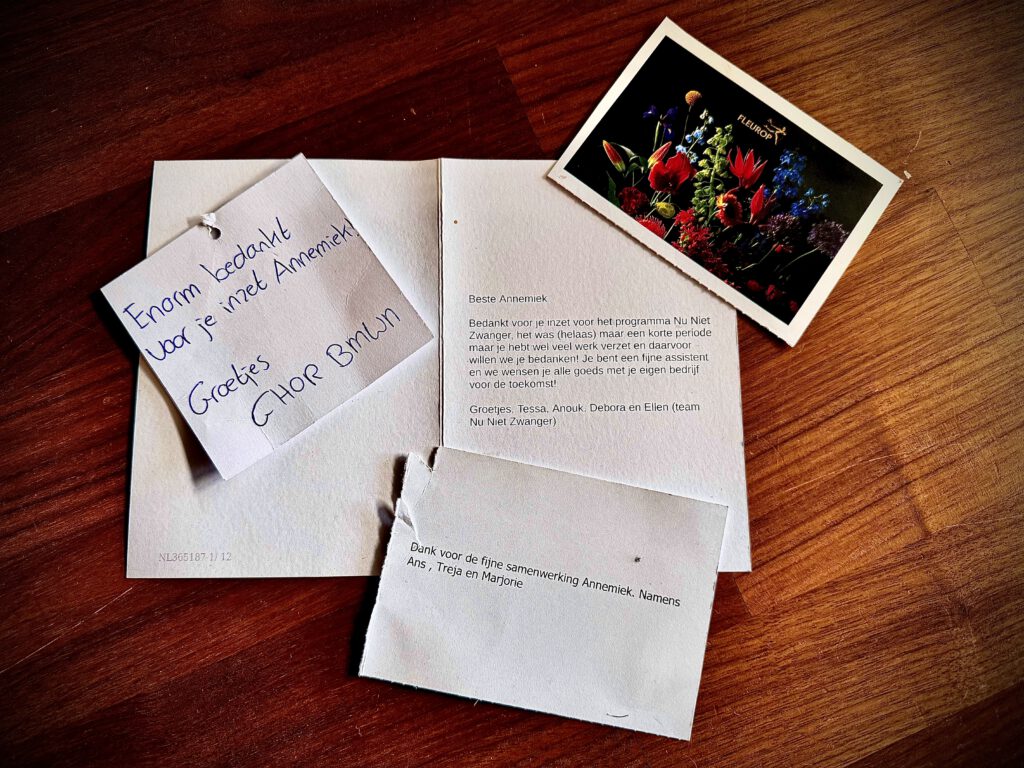 Enorm bedankt
voor je inzet Annemiek!
Groetjes
GHOR BMWN
NL365187-1/ 12
FLEUROP
Beste Annemiek
Bedankt voor je inzet voor het programma Nu Niet
Zwanger, het was (helaas) maar een korte periode
maar je hebt wel veel werk verzet en daarvoor
willen we je bedanken! Je bent een fijne assistent
en we wensen je alle goeds met je eigen bedrijf
voor de toekomst!
Groetjes, Tessa, Anouk, Debora en Ellen (team
Nu Niet Zwanger)
Dank voor de fijne samenwerking Annemiek. Namens
Ans , Treja en Marjorie